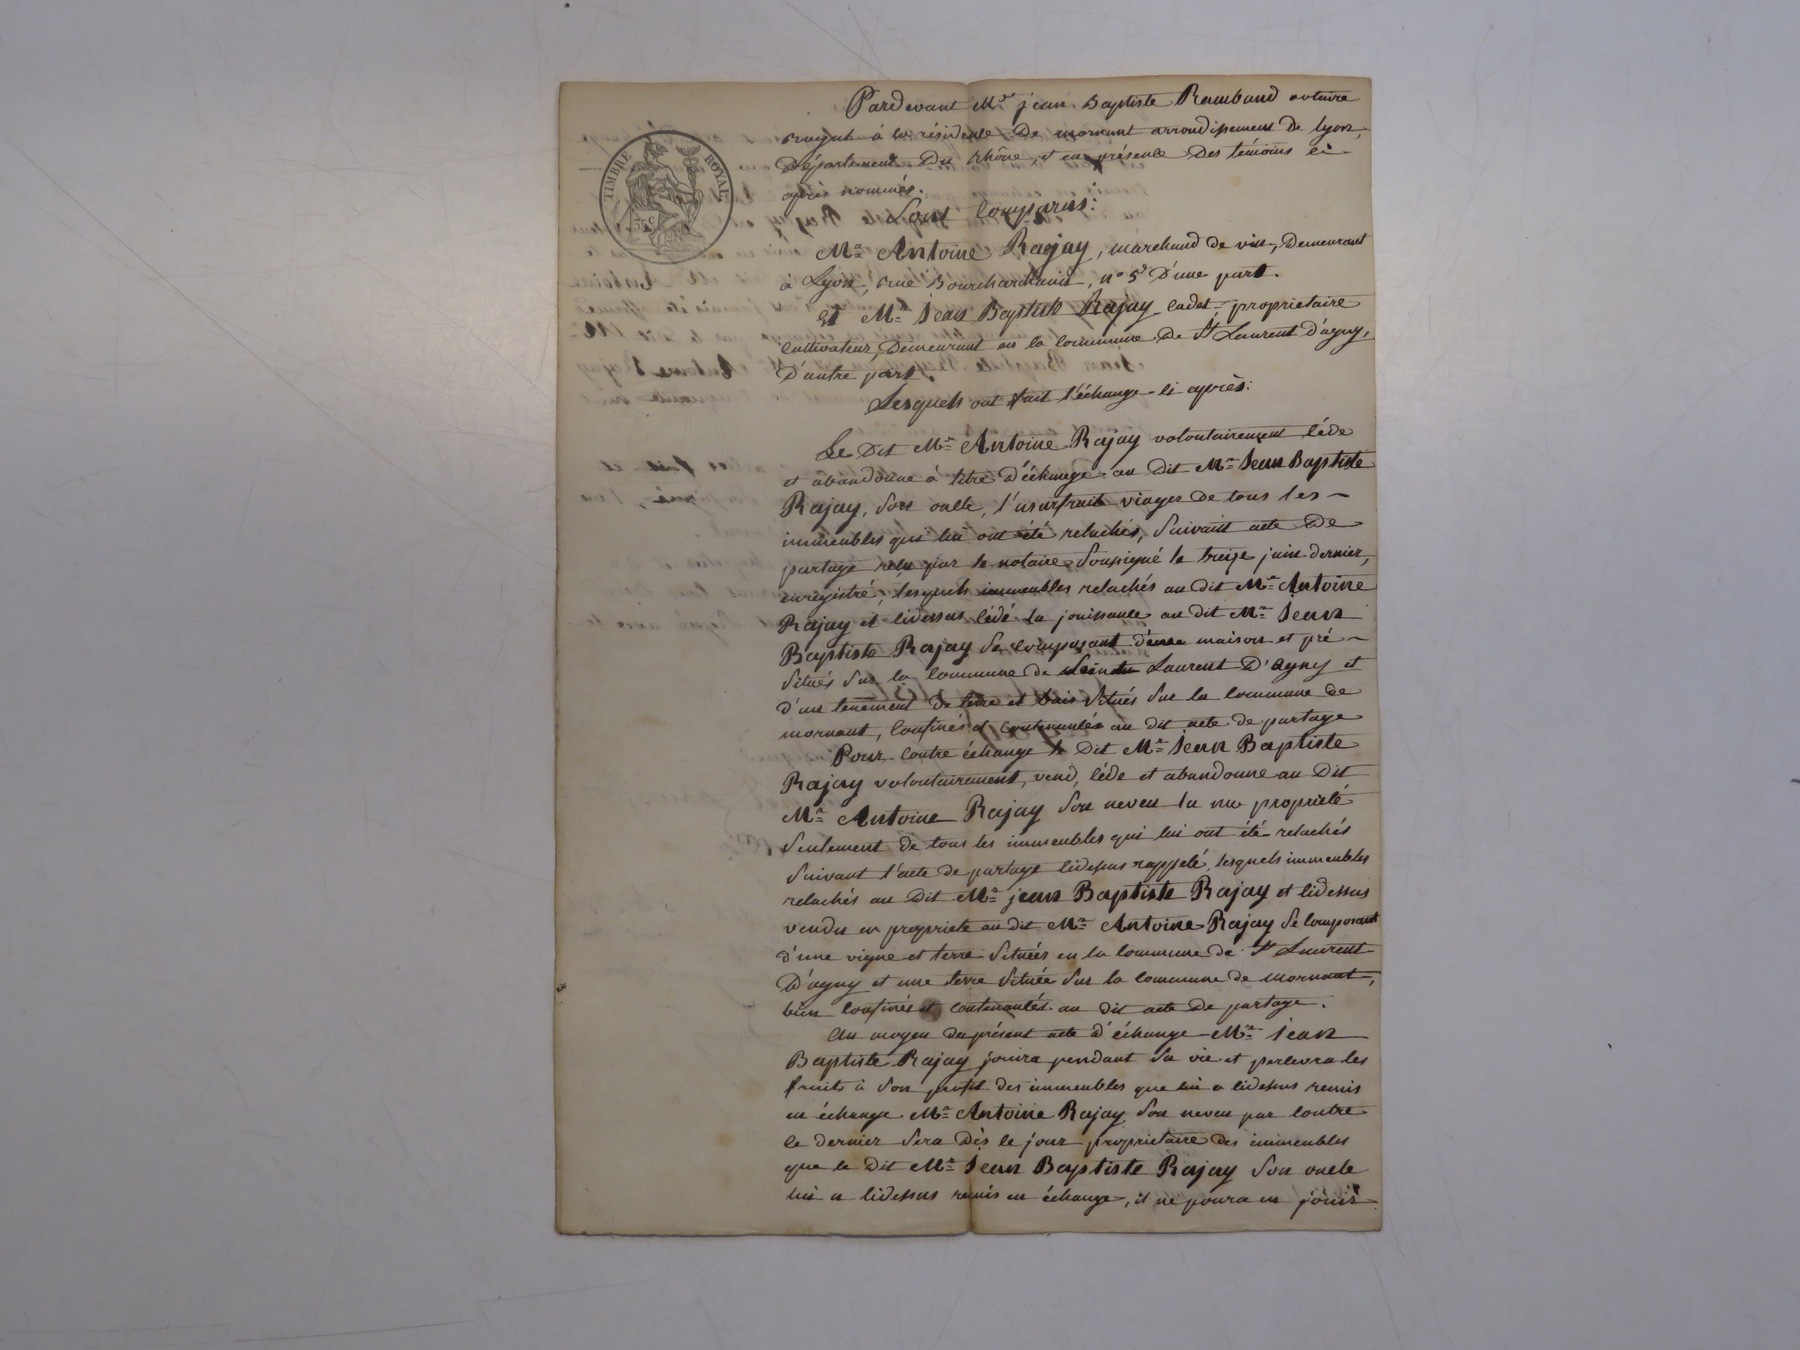 TIMBRE ROYAL
35c
Pardevant Mr. jean Baptiste Rambaud notaire
royal à la résidence De mornant arrondissement De lyon,
Département Du Rhône, et en présence Des témoins ci
après nommés.
Sont Comparus:
Mr. Antoine Rajay, marchand de vin, Demeurant
à Lyon, rue Bourchanin, n° 5 D'une part.
Et Mr. Jean Baptiste Rajay cadet, propriétaire
Cultivateur, Demeurant en la Commune De St Laurent D'agny,
D'autre part.
Lesquels ont fait l'échange ci après:
Le Dit Mr. Antoine Rajay volontairement cède
et abandonne à titre d'échange au Dit Mr. Jean Baptiste
Rajay, Son oncle, l'usurfruit viager de tous les
immeubles qui lui ont été relachés, Suivant acte De
partage reçu par le notaire Soussigné le treize juin dernier,
enregistré; lesquels immeubles relachés au dit Mr. Antoine
Rajay et cidessus cédé la jouissance au dit Mr. Jean
Baptiste Rajay Se composant d'une maison et pré
Situés Sur la Commune de Laurent D'agny et
d'un tenement De terre et bois Situés Sur la Commune de
mornant, Confinés et Contenantés au dit acte de partage
Pour contre échange le Dit Mr. Jean Baptiste
Rajay volontairement, vend, cède et abandonne au Dit
Mr. Antoine Rajay Son neveu la nue propriété
Seulement de tous les immeubles qui lui ont été relachés
Suivant l'acte de partage cidessus rappelé, lesquels immeubles
relachés au Dit Mr. jean Baptiste Rajay et cidessus
vendu en propriete au dit Mr. Antoine Rajay Se Composant
d'une vigne et terre Situées en la Commune de St Laurent
D'agny et une terre Située Sur la Commune de mornant,
bien Confinés et Contenantés au dit acte De partage.
Au moyen du présent acte d'échange Mr. Jean
Baptiste Rajay jouira pendant Sa vie et percevra les
fruits à Son profit des immeubles que lui a cidessus remis
en échange Mr. Antoine Rajay Son neveu par Contre
ce dernier Sera Dès ce jour propriétaire des immeubles
que le Dit Mr. Jean Baptiste Rajay Son oncle
lui a cidessus remis en échange, il ne poura en jouir